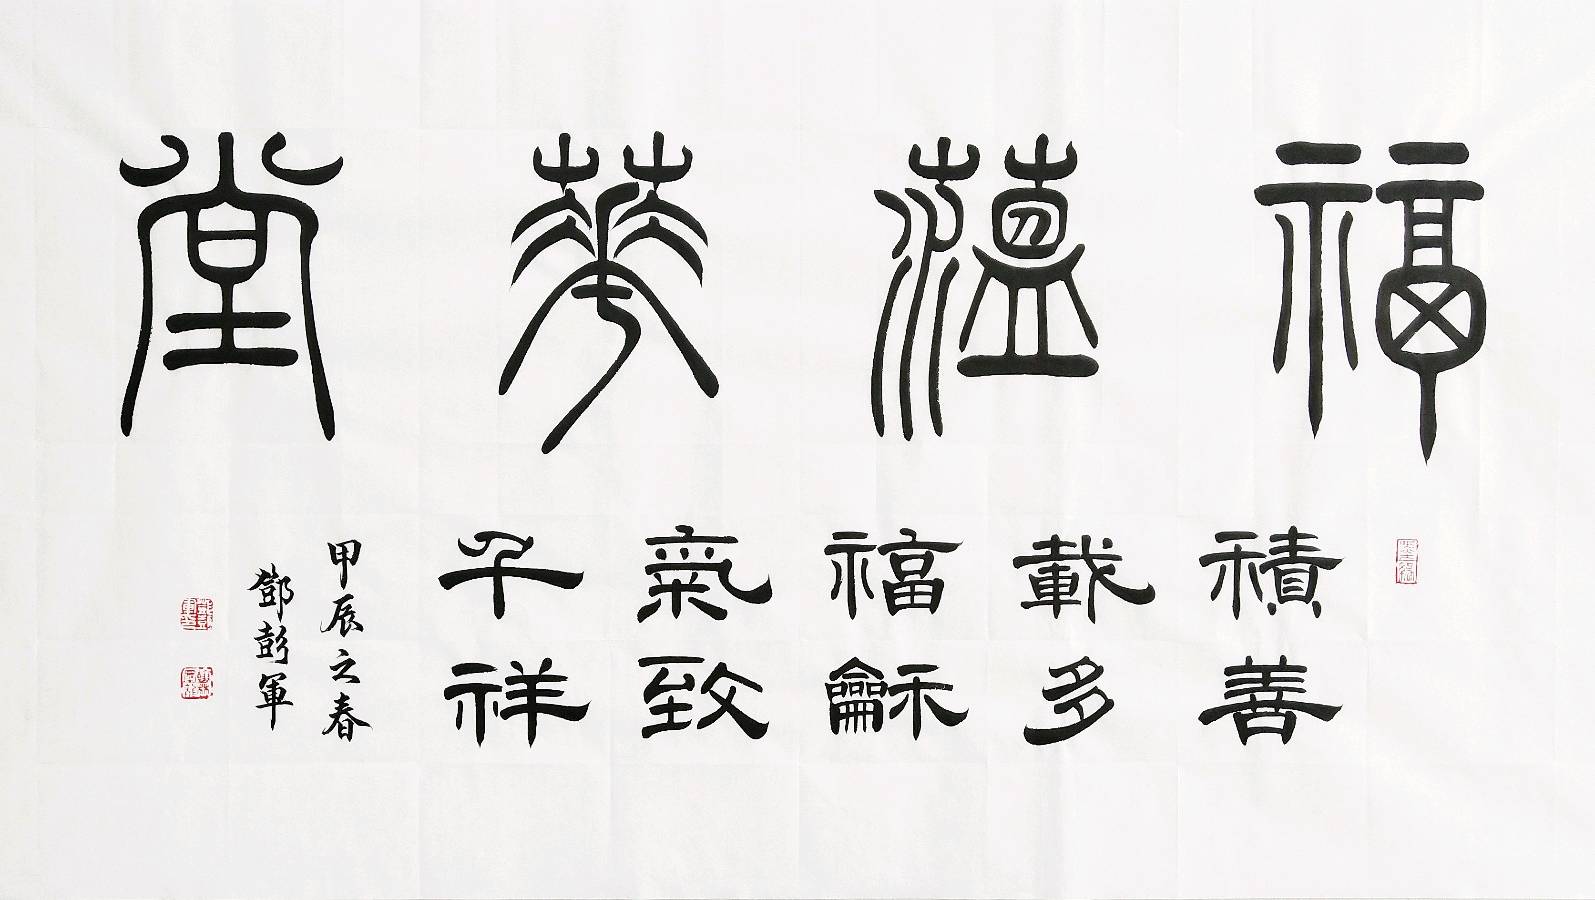 福薀華堂
積善
載多
福龢
氣致
千祥
甲辰之春
鄧彭軍